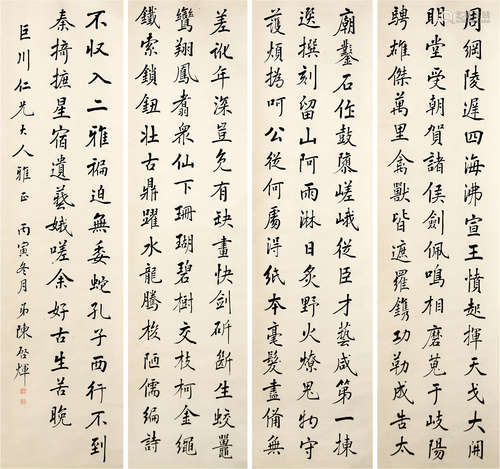 周綱陵遲四海沸宣王憤起揮天戈大開
明堂受朝賀諸侯劍佩鳴相磨蒐于岐陽
騁雄傑萬里禽獸皆遮羅鐫功勒成告太
廟鑿石作鼓隳嵯峨從臣才藝咸第一揀
選撰刻留山阿雨淋日炙野火燎鬼物守
護煩撝呵公從何處得紙本毫髮盡備無
差訛年深豈免有缺畫快劍斫斷生蛟鼉
鸞翔鳳翥眾仙下珊瑚碧樹交枝柯金繩
鐵索鎖鈕壯古鼎躍水龍騰梭陋儒編詩
不收入二雅褊迫無委蛇孔子西行不到
秦掎摭星宿遺羲娥嗟余好古生苦晚
巨川仁兄大人雅正 丙寅冬月弟陳啓輝